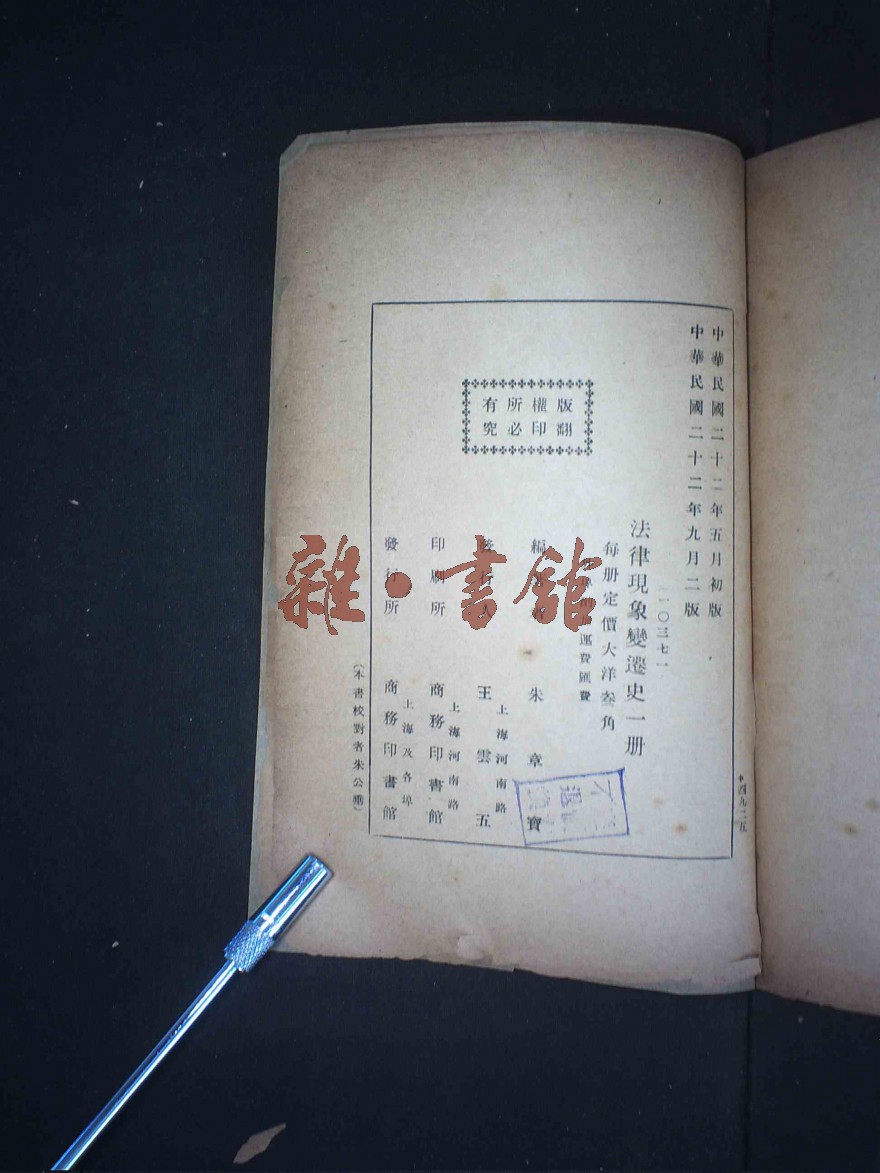 中華民國二十二年五月初版
中華民國二十二年九月二版
一〇三七一
法律現象變遷史一册
每册定價大洋叁角
運費匯費
版權所有
翻印必究
編
朱章寶
發行人
上海河南路
王雲五
印刷所
上海河南路
商務印書館
發行所
上海及各埠
商務印書館
(本書校對者朱公垂)
四九二五
雜·書館